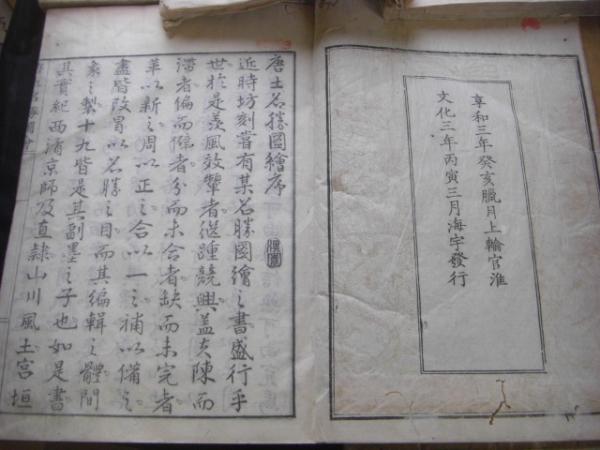 享和三年癸亥臘月上輸官准
文化三年丙寅三月海宇發行
唐土名勝圖繪序
近時坊刻嘗有某名勝圖繪之書盛行乎
世於是羨風效顰者繼踵競興蓋大陳而
滞者偏而隘者分而未合者缺而未完者
革以新之周以正之合以一之補以備之
盡皆改冒以名勝之目而其編輯之體間
素之製十九皆是其副墨之子也如是書
其實紀西清京師及直隷山川風土宮垣